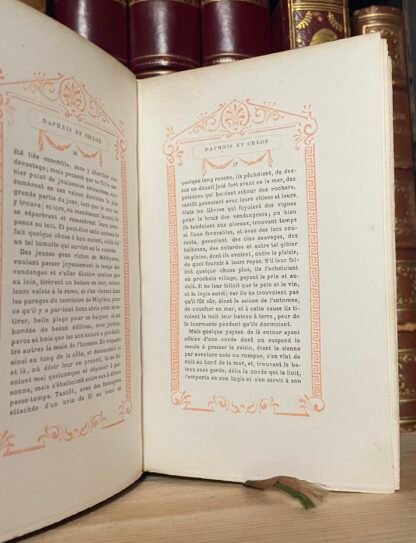 DAPHNIS ET CHLOÉ
56
dié liés ensemble, sans y chercher rien
davantage; mais pource que ce fut le der-
nier point de jouissance amoureuse, ils con-
sumèrent en ces vaines étreintes la plus
grande partie du jour, tant que le soir les
y trouva; et lors, en maudissant la nuit, ils
se séparèrent et ramenèrent leurs trou-
peaux au tect. Et peut-être enfin eussent-ils
fait quelque chose à bon escient, n'eût été
un tel tumulte qui survint en la contrée.
Des jeunes gens riches de Méthymne,
voulant passer joyeusement le temps des
vendanges et s'aller ébattre quelque
au loin, tirèrent un bateau en mer, mirent
leurs valets à la rame, et s'en vinrent dans
les parages du territoire de Mitylène, pour
ce qu'il y a partout bons abris pour se re-
tirer, belle plage pour se baigner, et est
bordée de beaux édifices, avec jardins,
parcs et bois que les uns nature a produits,
les autres la main de l'homme. En voguant
ainsi au long de la côte, et descendant ci
et là, où désir leur en prenait, ils ne fai-
soient mal quelconque ni déplaisir à per-
sonne, mais s'ébattoient entre eux à divers
passe-temps. Tantôt, avec des hameçons
attachés d'un brin de fil au bout de
DAPHNIS ET CHLOÉ
57
quelque long roseau, ils pêchoient, de des-
sus un écueil jeté fort avant en la mer, des
poissons qui hantent autour des rochers,
tantôt prenoient avec leurs chiens et leurs
filets les lièvres qui fuyoient des vignes
pour le bruit des vendangeurs; ou bien
ils tendoient aux oiseaux, trouvant temps
et lieux favorables, et avec des lacs cou-
rants, prenoient des oies sauvages, des
halbrens, des outardes et autre tel gibier
de plaine, dont ils avoient, outre le plaisir,
de quoi fournir à leurs repas. S'il leur fal-
loit quelque chose plus, ils l'achetoient
au prochain village, payant le prix et au
delà. Il ne leur falloit que le pain et le vin,
et le logis aussi; car ils ne trouvoient pas
qu'il fût sûr, étant la saison de l'automne,
de coucher en mer, et à cette cause ils ti-
roient la nuit leur bateau à terre, peur de
la tourmente pendant qu'ils dormoient.
Mais quelque paysan de là entour ayant
affaire d'une corde dont on suspend la
meule à pressurer le raisin, étant la sienne
par aventure usée ou rompue, s'en vint de
nuit au bord de la mer, et, trouvant le ba-
teau sans garde, délia la corde qui le lioit,
l'emporta en son logis et s'en servit à son